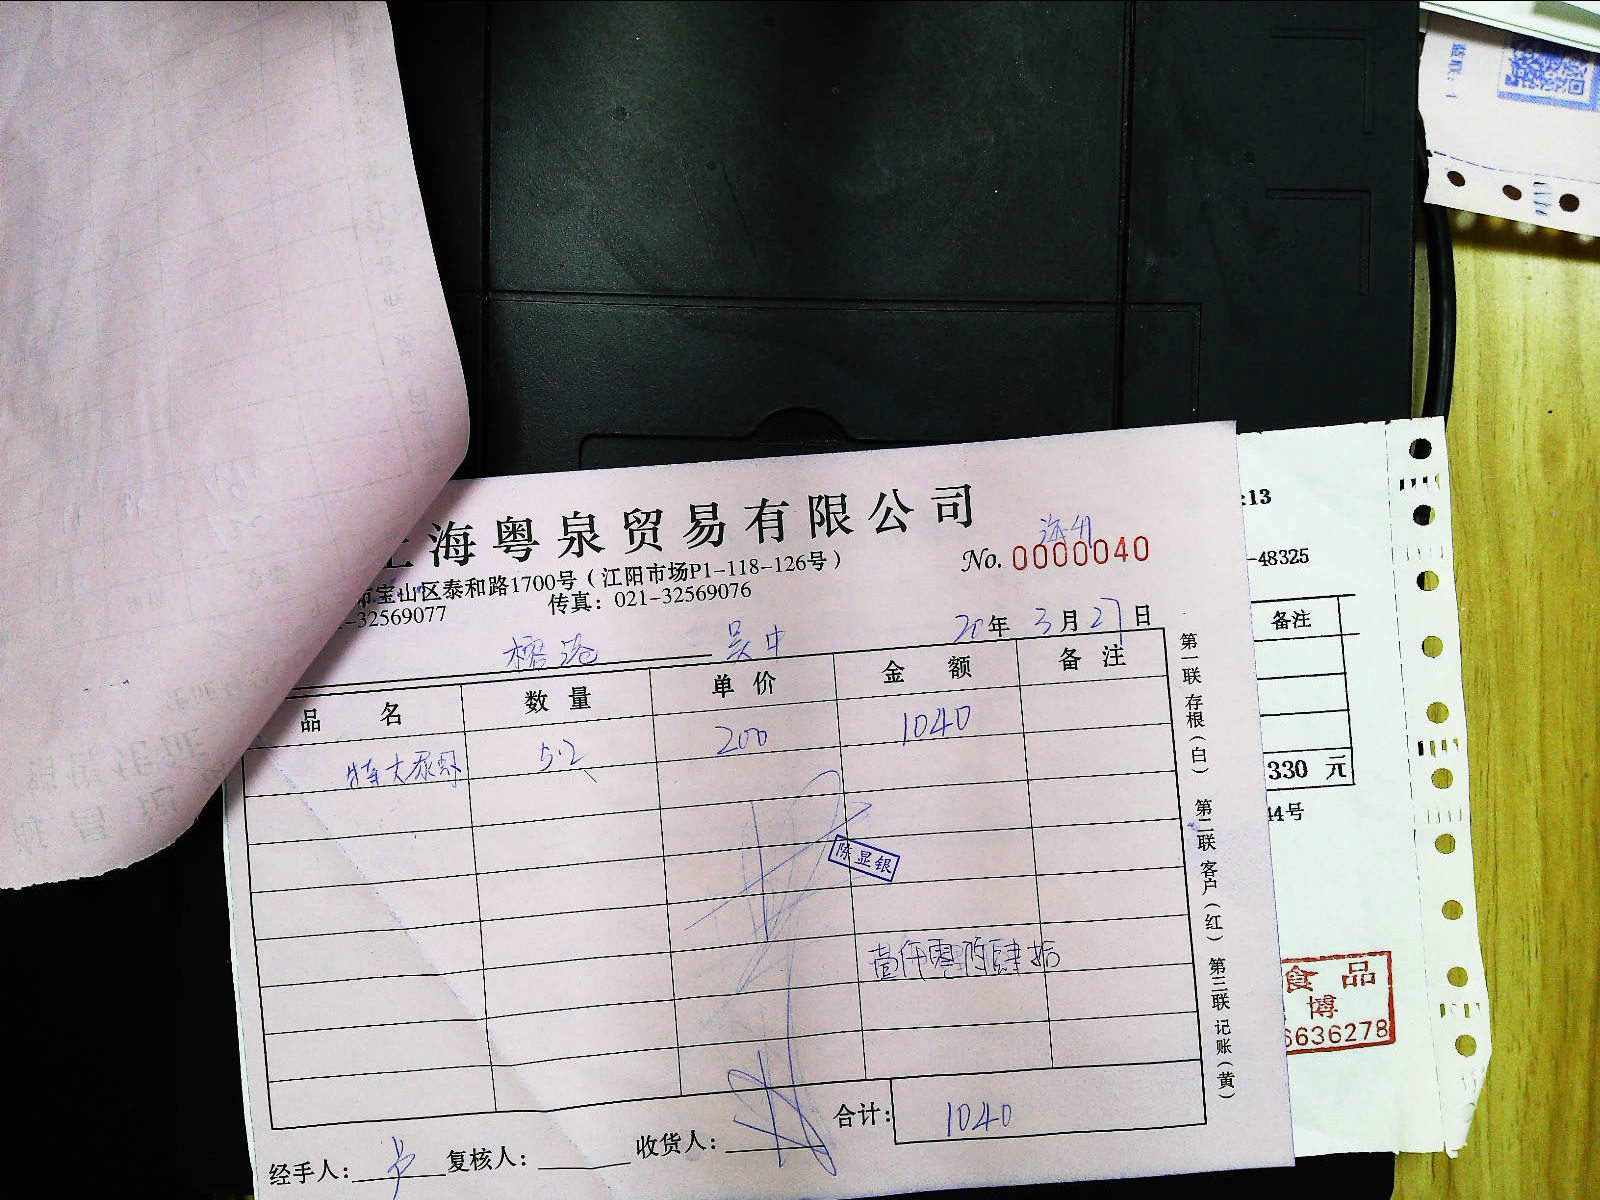 上海粤泉贸易有限公司
海州
No. 0000040
市宝山区泰和路1700号（江阳市场P1-118-126号）
-32569077 传真：021-32569076
20年 3月27日
榕港 吴中
品名 数量 单价 金额 备注
特大 5.2 200 1040
陈显银
壹仟零佰肆拾
合计： 1040
经手人： 复核人： 收货人：
第一联 存根（白） 第二联 客户（红） 第三联 记账（黄）
:13
-48325
备注
330 元
44号
食品
博
6636278